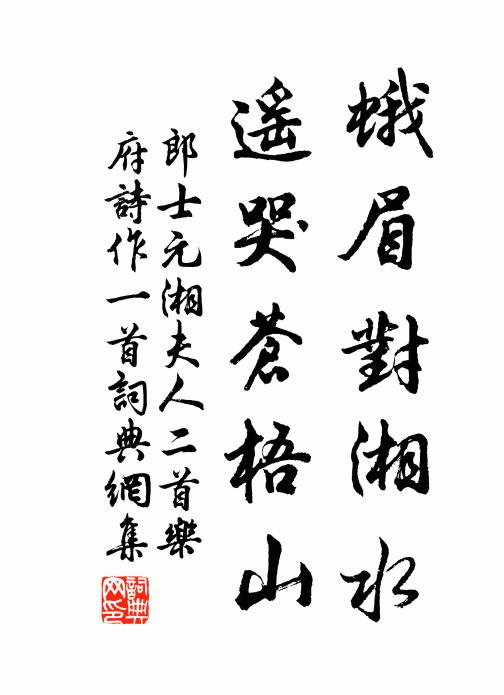 蛾眉對湘水
遥哭蒼梧山
郎士元湘夫人二首樂
府詩作一首詞典網集
詞典
网印